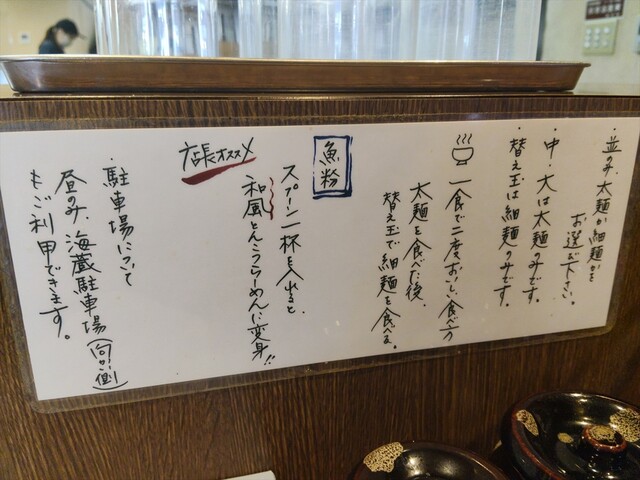 ・並のみ、太麺か細麺かを
お選び下さい。
・中・大は太麺のみです。
・替え玉は細麺のみです。
一食で二度おいしい食べ方
太麺を食べた後、
替え玉で細麺を食べる。
魚粉
スプーン一杯を入れると、
和風とんこつらーめんに変身!!
店長オススメ
・駐車場について
昼のみ、海蔵駐車場(向かい側)
もご利用できます。